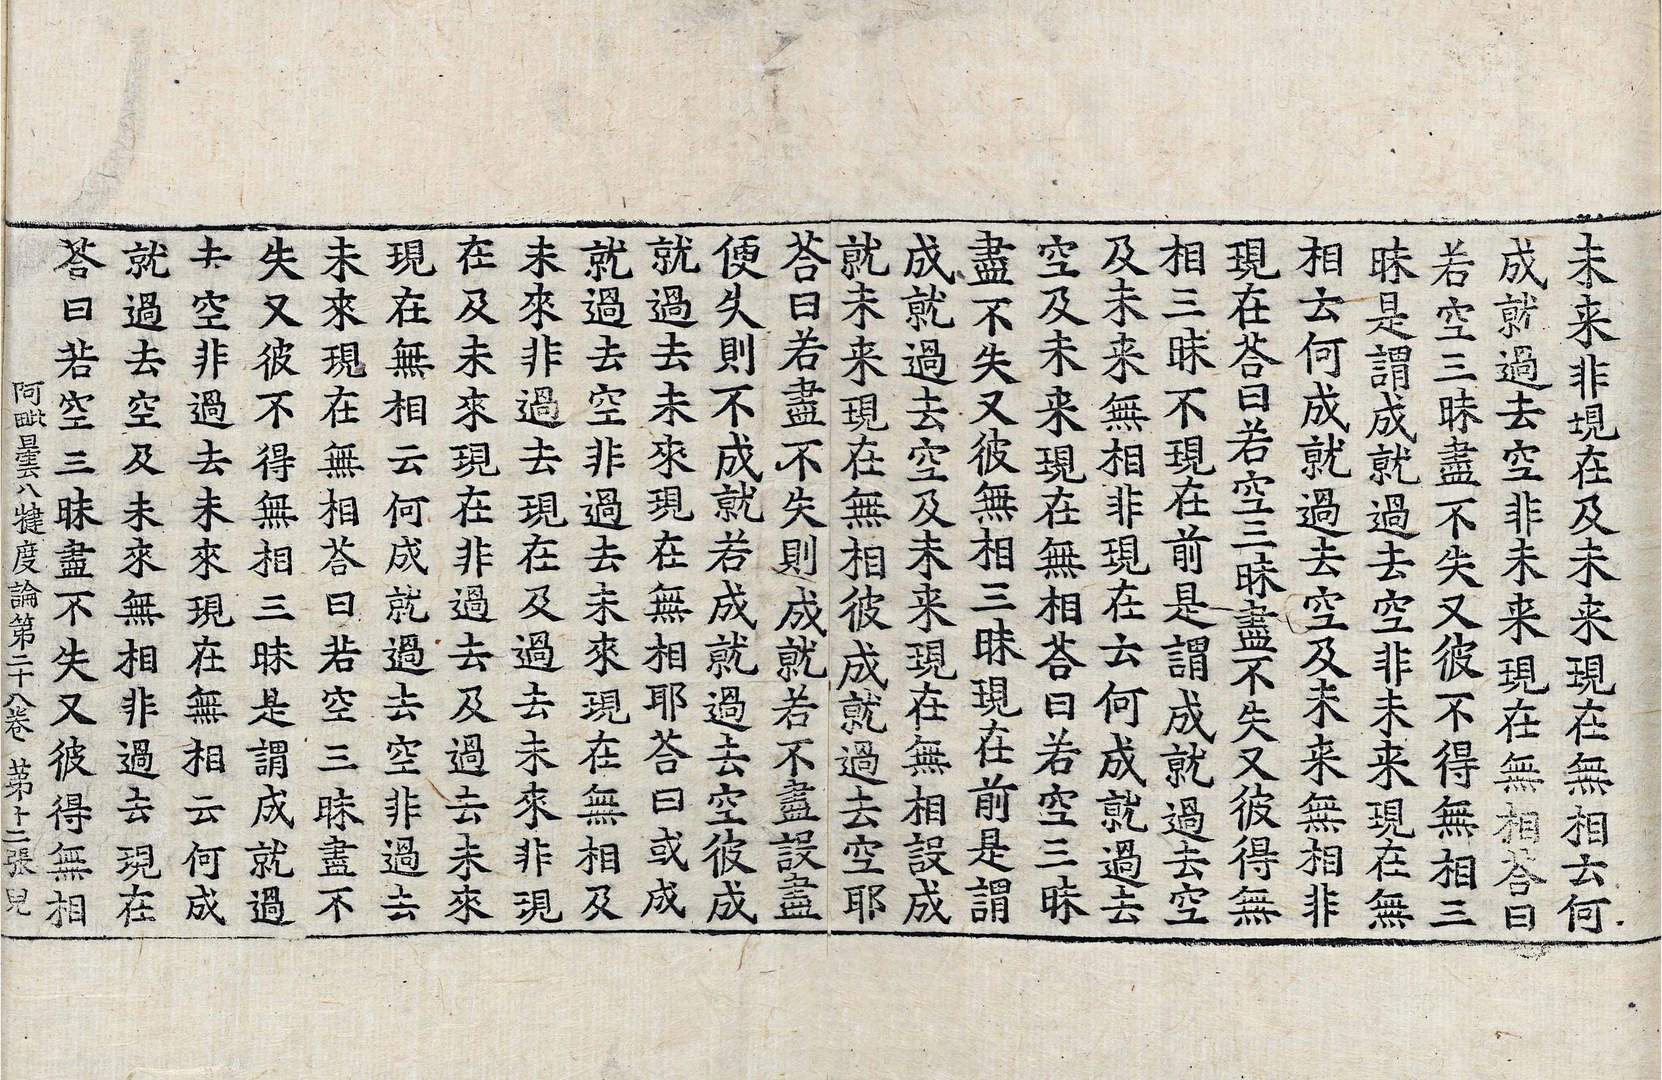 未来非現在及未来現在無相去何
成就過去空非未来現在無相荅曰
若空三昧盡不失又彼不得無相三
昧是謂成就過去空非未来現在無
相去何成就過去空及未来無相非
現在荅曰若空三昧盡不失又彼得無
相三昧不現在前是謂成就過去空
及未来無相非現在去何成就過去
空及未来現在無相荅曰若空三昧
盡不失又彼無相三昧現在前是謂
成就過去空及未来現在無相設成
就未来現在無相彼成就過去空耶
荅曰若盡不失則成就若不盡設盡
便失則不成就若成就過去空彼成
就過去未來現在無相耶荅曰或成
就過去空非過去未來現在無相及
未來非過去現在及過去未來非現
在及未來現在非過去及過去未來
現在無相云何成就過去空非過去
未來現在無相荅曰若空三昧盡不
失又彼不得無相三昧是謂成就過
去空非過去未來現在無相云何成
就過去空及未來無相非過去現在
荅曰若空三昧盡不失又彼得無相
阿毗曇八犍度論第二十八卷 第十二張 皃